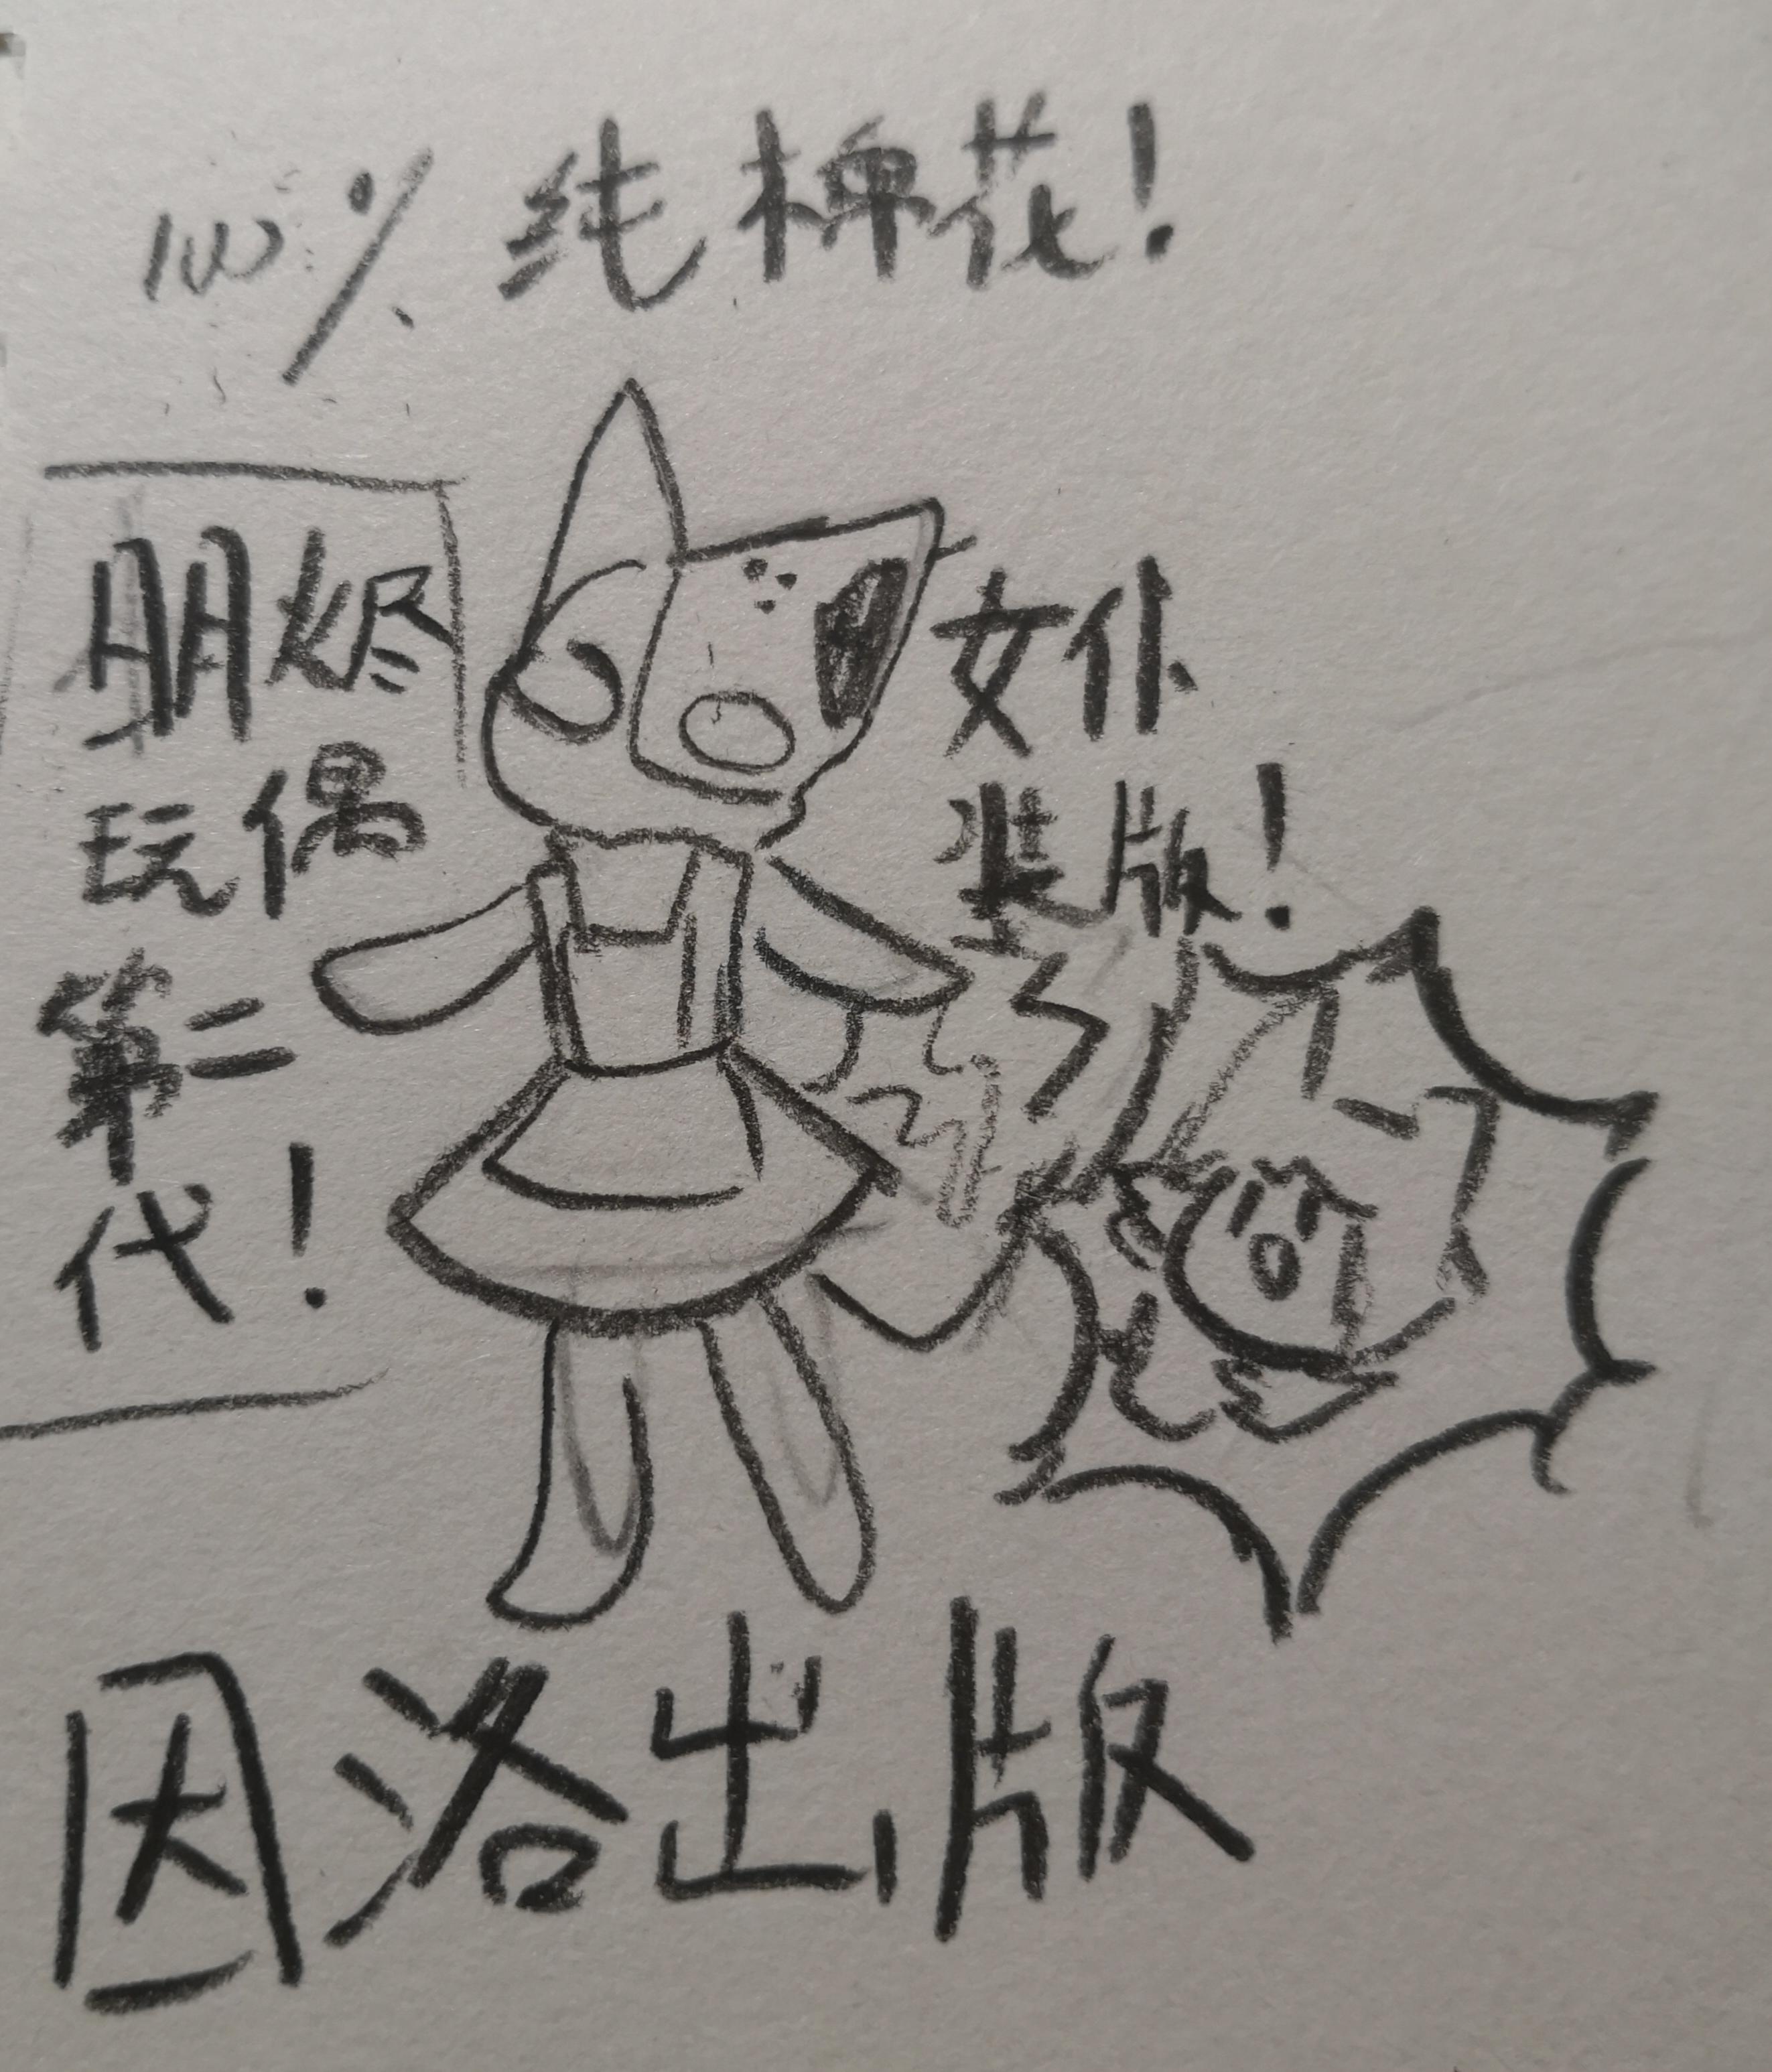 100% 纯棉花!
明烬
玩偶
第二
代!
女仆
装版!
因洛出版